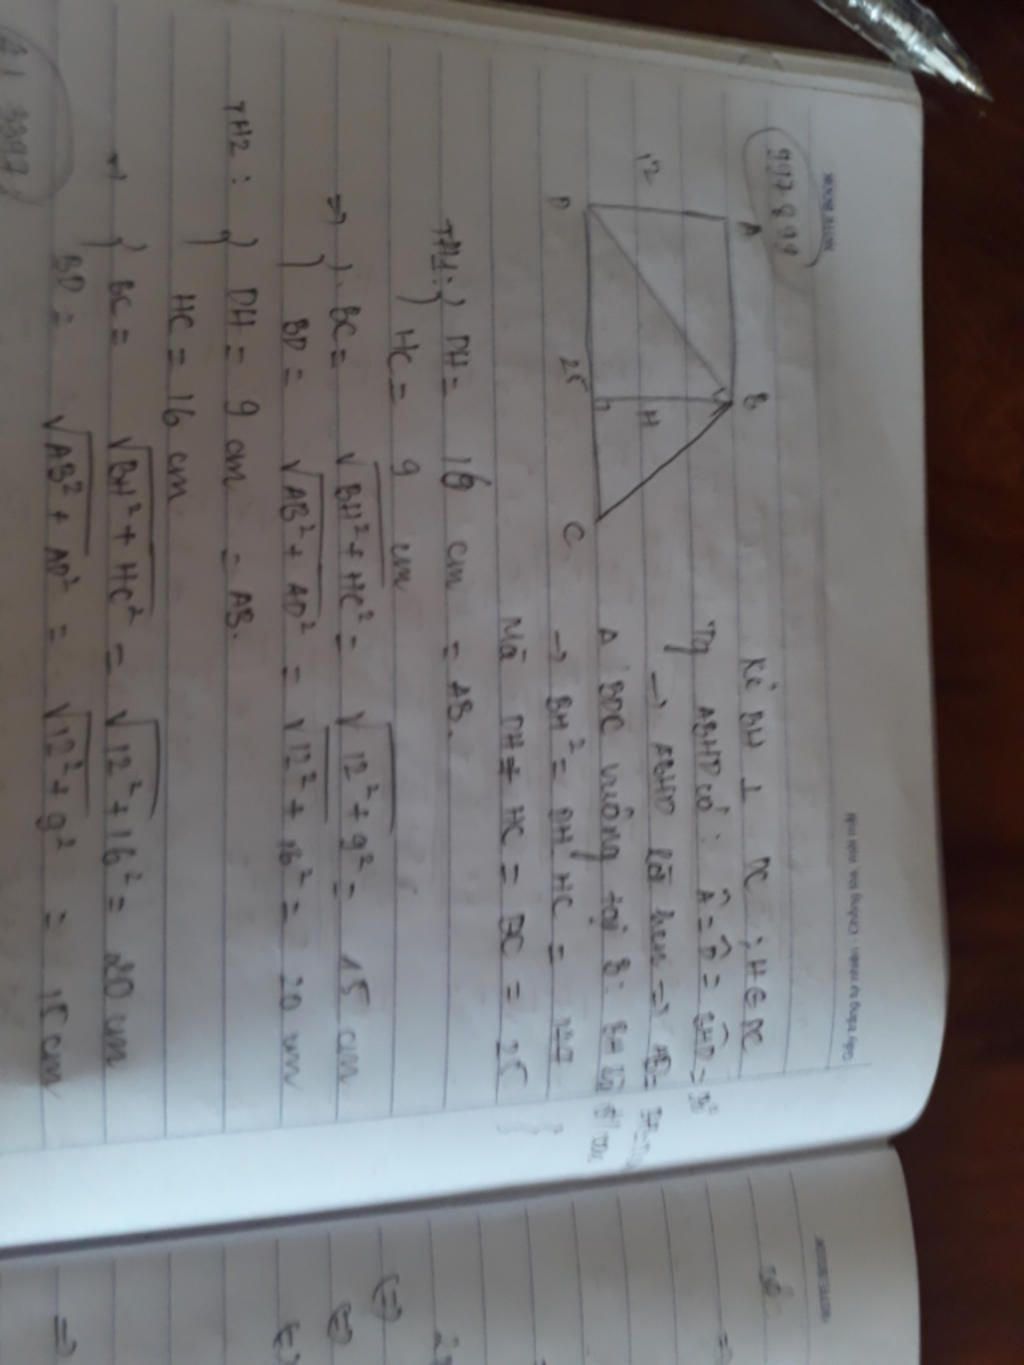 997899
A
B
12
H
D
25
C
Kẻ BH ⊥ DC ; H ∈ DC
Tg ABHD có : Â = D̂ = BĤD = 90°
→ ABHD là hcn ⇒ AB =
Δ BDC vuông tại B: BH là
→ BH² = DH.HC = 144
Mà DH + HC = DC = 25
TH1: DH = 16 cm = AB.
HC = 9 cm
⇒ BC = √BH² + HC² = √12² + 9² = 15 cm
BD = √AB² + AD² = √12² + 16² = 20 cm
TH2 : DH = 9 cm = AB.
HC = 16 cm
→ BC = √BH² + HC² = √12² + 16² = 20 cm
BD = √AB² + AD² = √12² + 9² = 15 cm